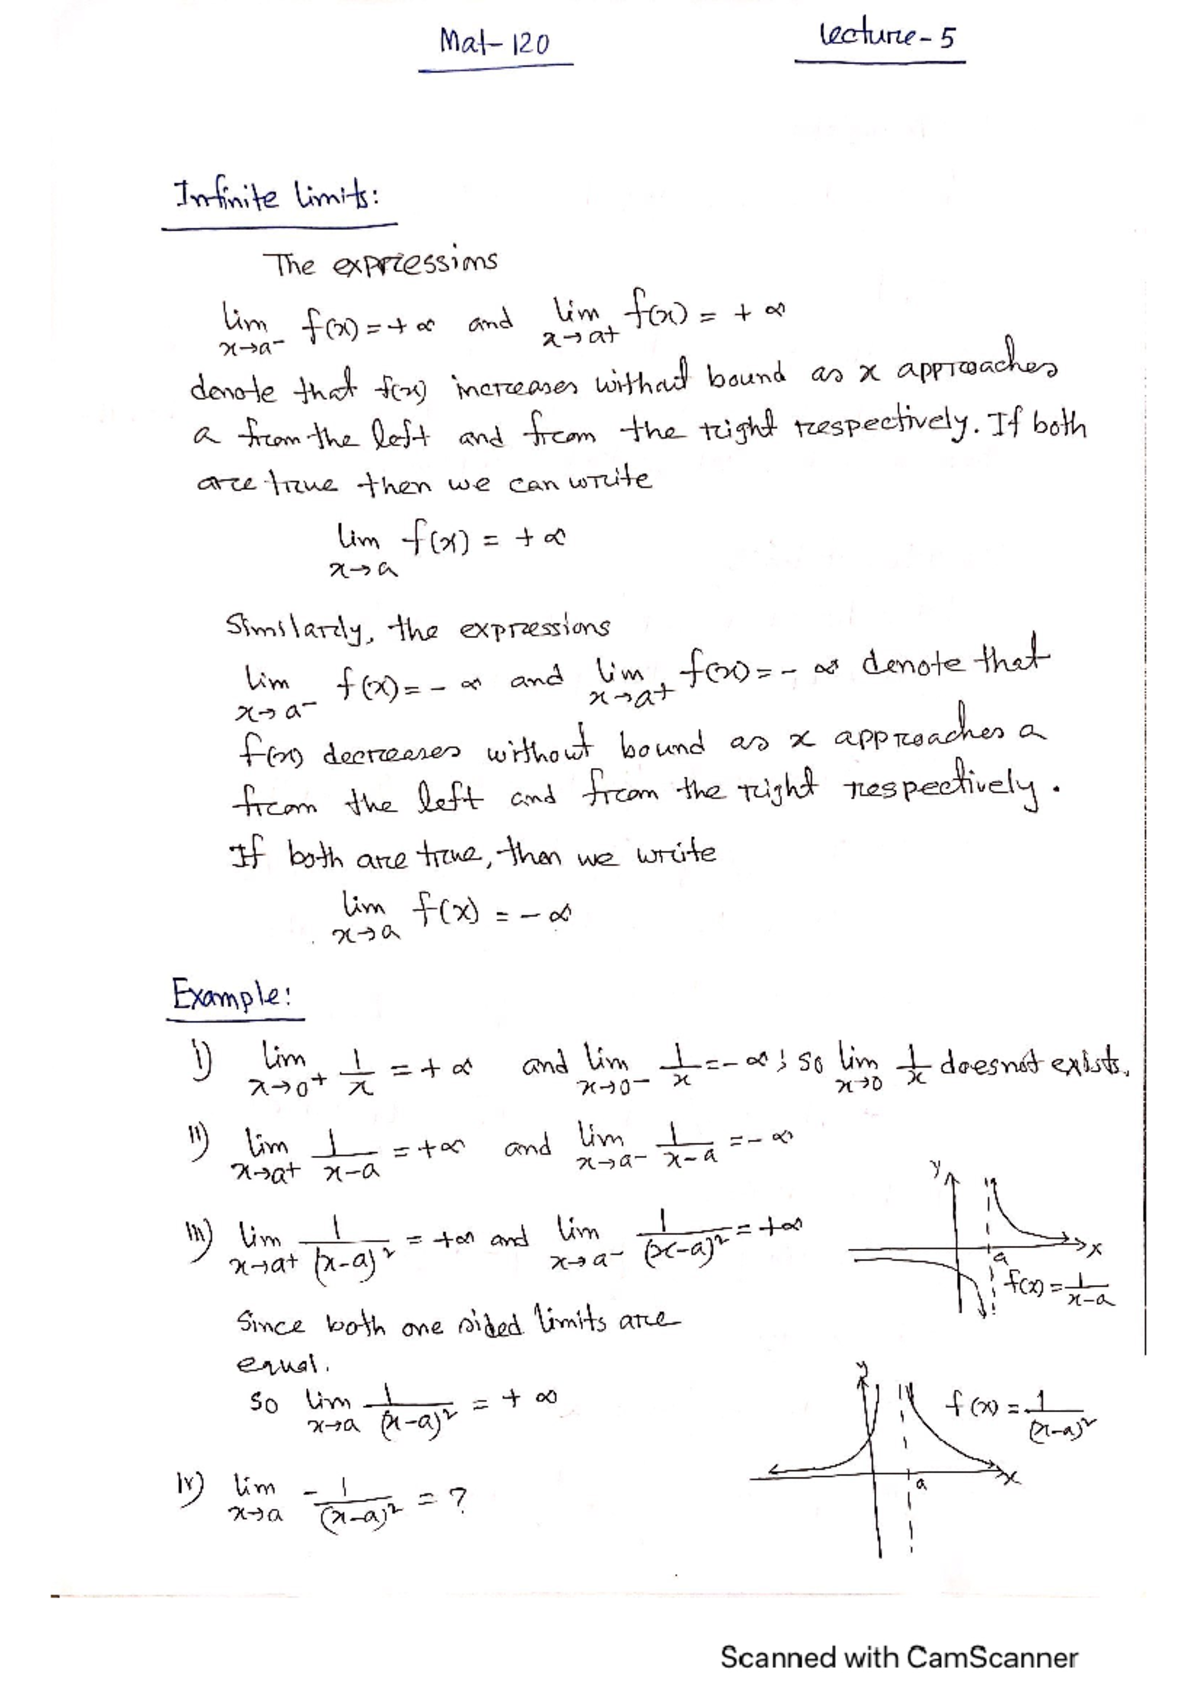 Mat-120
Lecture-5
Infinite limits:
The expressions
lim x→a⁻ f(x) = +∞ and lim x→a+ f(x) = +∞
denote that f(x) increases without bound as x approaches
a from the left and from the right respectively. If both
are true then we can write
lim x→a f(x) = +∞
Similarly, the expressions
lim x→a⁻ f(x) = -∞ and lim x→a+ f(x) = -∞ denote that
f(x) decreases without bound as x approaches a
from the left and from the right respectively.
If both are true, then we write
lim x→a f(x) = -∞
Example:
i) lim x→0⁺ 1/x = +∞ and lim x→0⁻ 1/x = -∞ ; so lim x→0 1/x doesnot exists.
ii) lim x→a+ 1/(x-a) = +∞ and lim x→a⁻ 1/(x-a) = -∞
iii) lim x→a+ 1/(x-a)² = +∞ and lim x→a⁻ 1/(x-a)² = +∞
Since both one sided limits are
equal.
So lim x→a 1/(x-a)² = +∞
iv) lim x→a -1/(x-a)² = ?
y
x
a
f(x) = 1/(x-a)
y
f(x) = 1/(x-a)²
x
a
Scanned with CamScanner